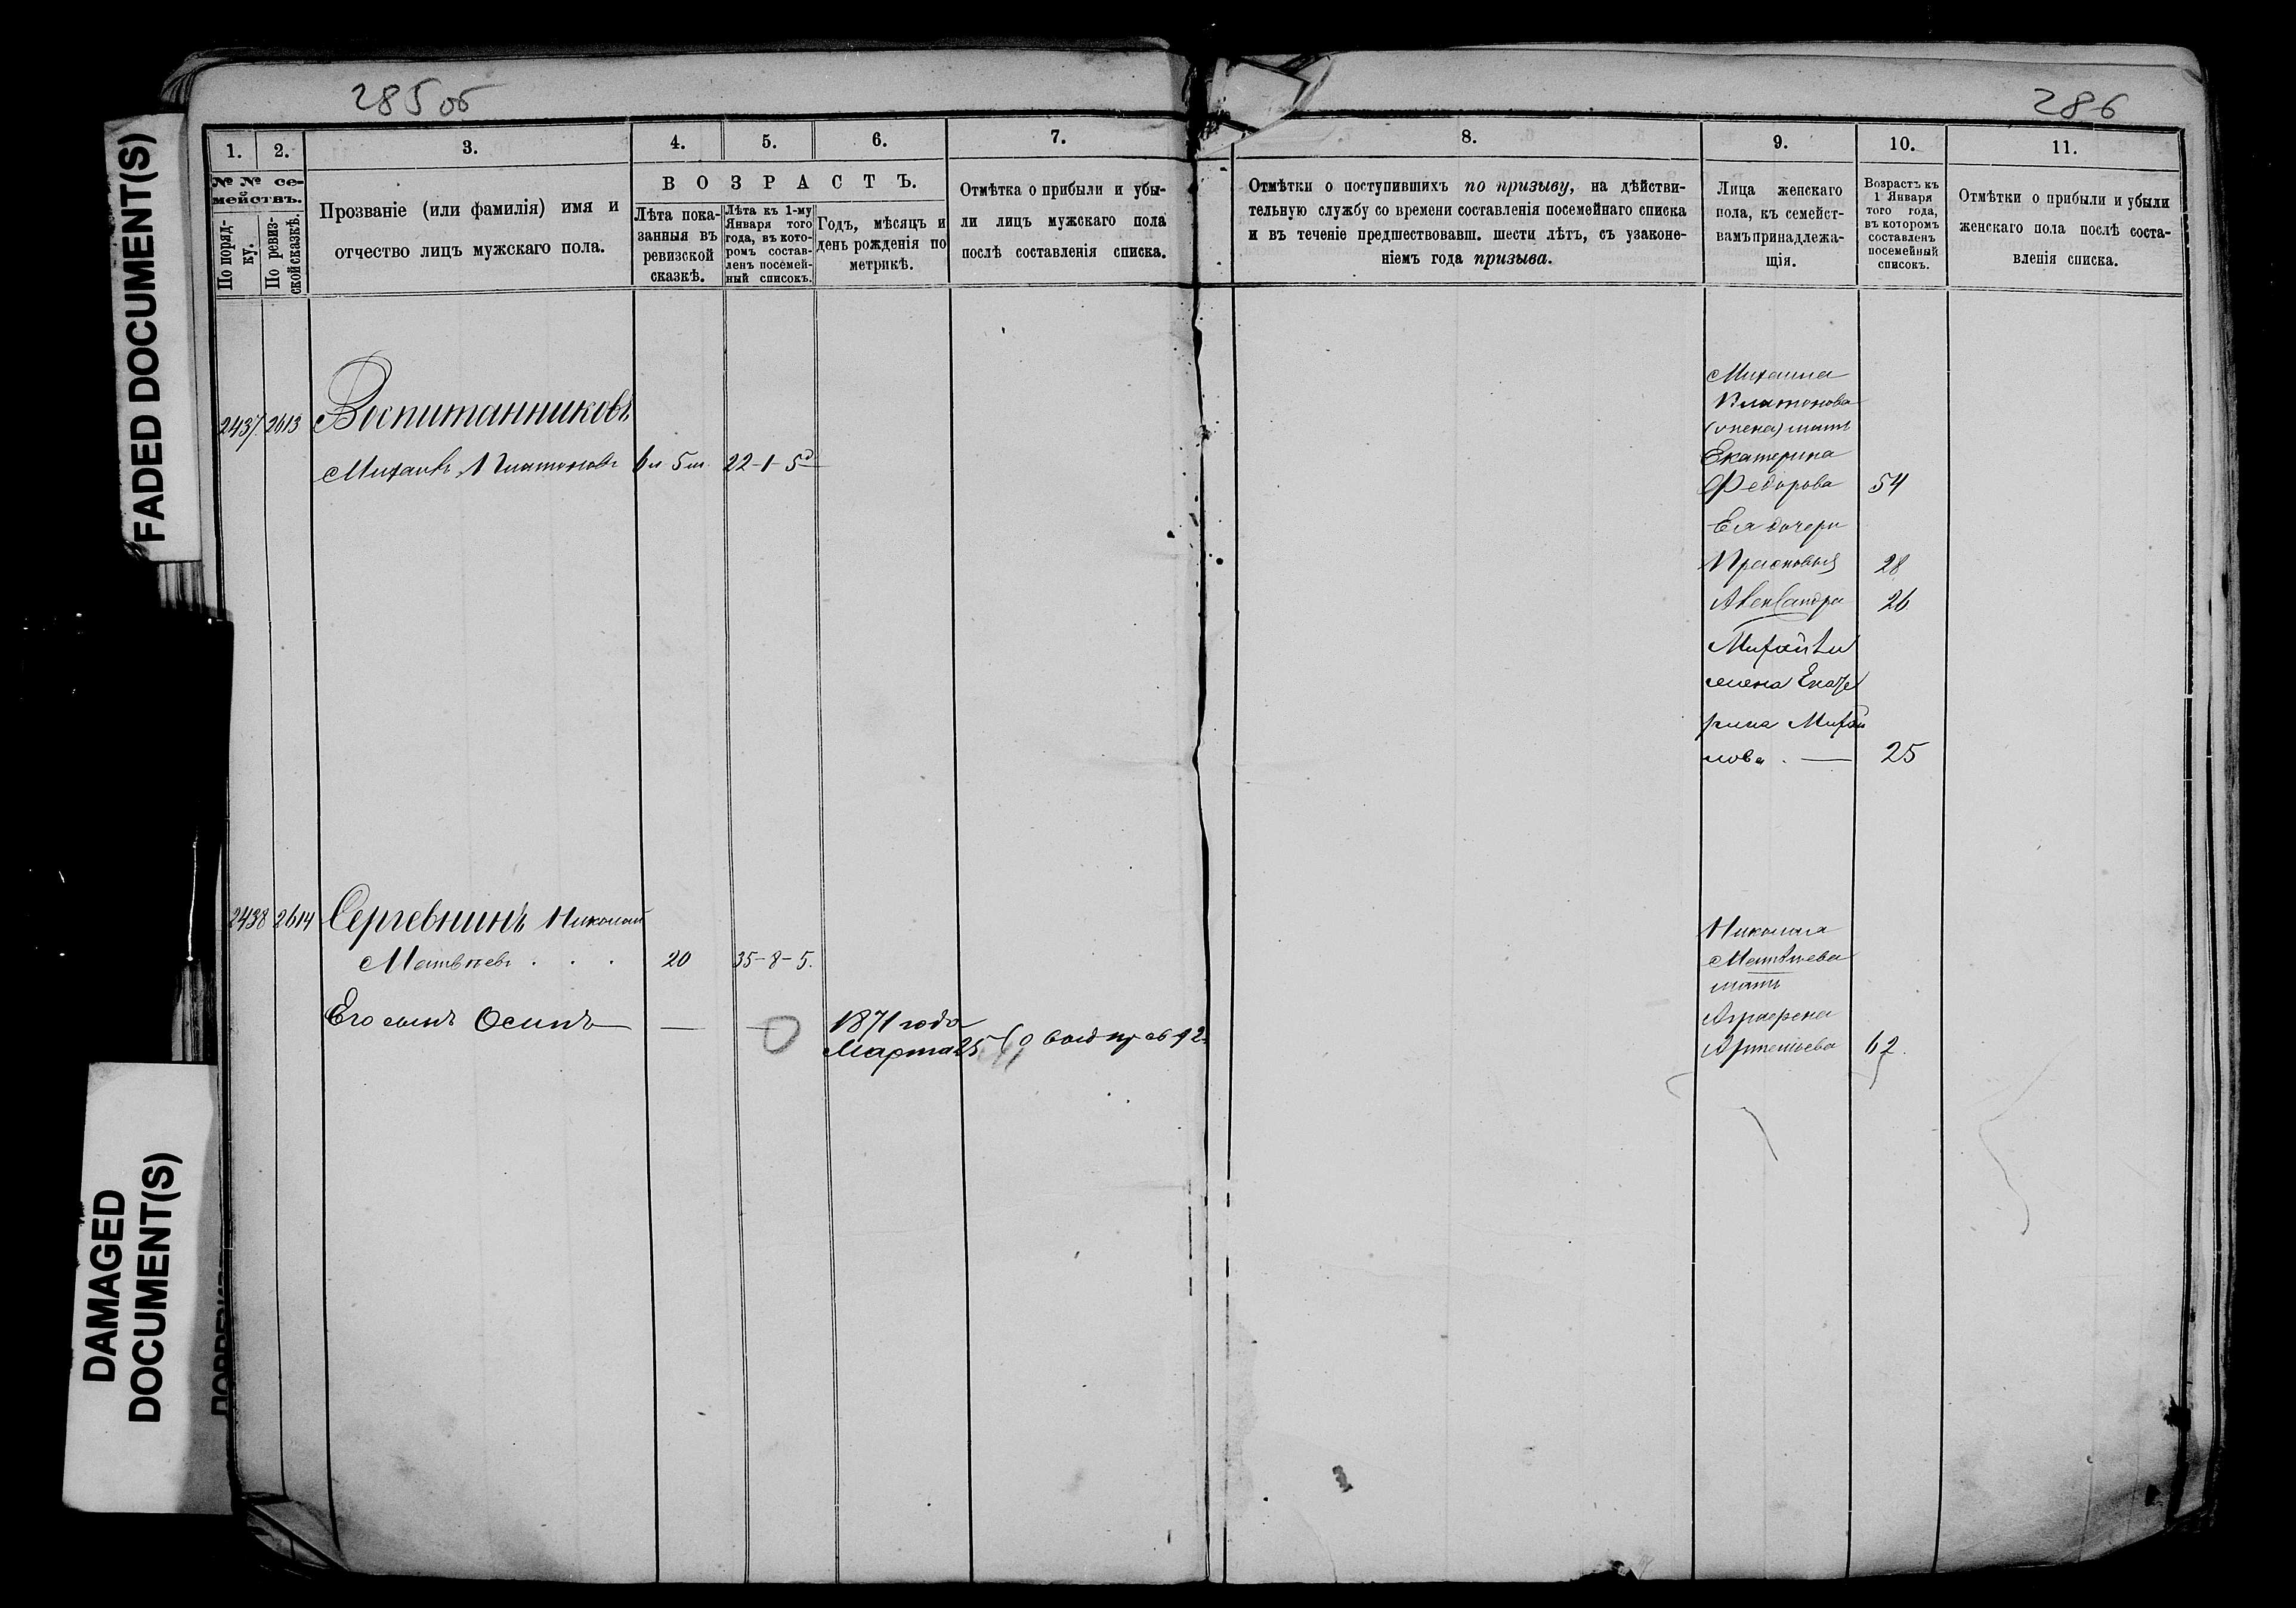 285 об
286
FADED DOCUMENT(S)
DAMAGED
DOCUMENT(S)
1.
2.
3.
4.
5.
6.
7.
8.
9.
10.
11.
№ № се-
мействъ.
По поряд-
ку.
По ревиз-
ской сказкѣ.
Прозваніе (или фамилія) имя и
отчество лицъ мужскаго пола.
ВОЗРАСТЪ.
Лѣта пока-
занныя въ
ревизской
сказкѣ.
Лѣта къ 1-му
Января того
года, въ кото-
ромъ состав-
ленъ посемей-
ный списокъ.
Годъ, мѣсяцъ и
день рожденія по
метрикѣ.
Отмѣтка о прибыли и убы-
ли лицъ мужскаго пола
послѣ составленія списка.
Отмѣтки о поступившихъ по призыву, на дѣйстви-
тельную службу со времени составленія посемейнаго списка
и въ теченіе предшествовавш. шести лѣтъ, съ узаконе-
ніемъ года призыва.
Лица женскаго
пола, къ семейст-
вамъ принадлежа-
щія.
Возрастъ къ
1 Января
того года,
въ которомъ
составленъ
посемейный
списокъ.
Отмѣтки о прибыли и убыли
женскаго пола послѣ соста-
вленія списка.
2437 2613 Воспитанниковъ
Михаилъ Платоновъ 6 л 5 м 22-1-5
Михаила
Платонова
мать
Екатерина
Федорова 54
Ея дочери
Прасковья 28
Александра 26
Михаила
жена Екате
рина Михаи
лова. — 25
2438 2614 Сергевнинъ Николай
Матвѣевъ . . . 20 35-8-5.
Его сынъ Осипъ — — 1871 года
Марта 25
Николая
Матвѣева
мать
Аграфена
Артемьева 62